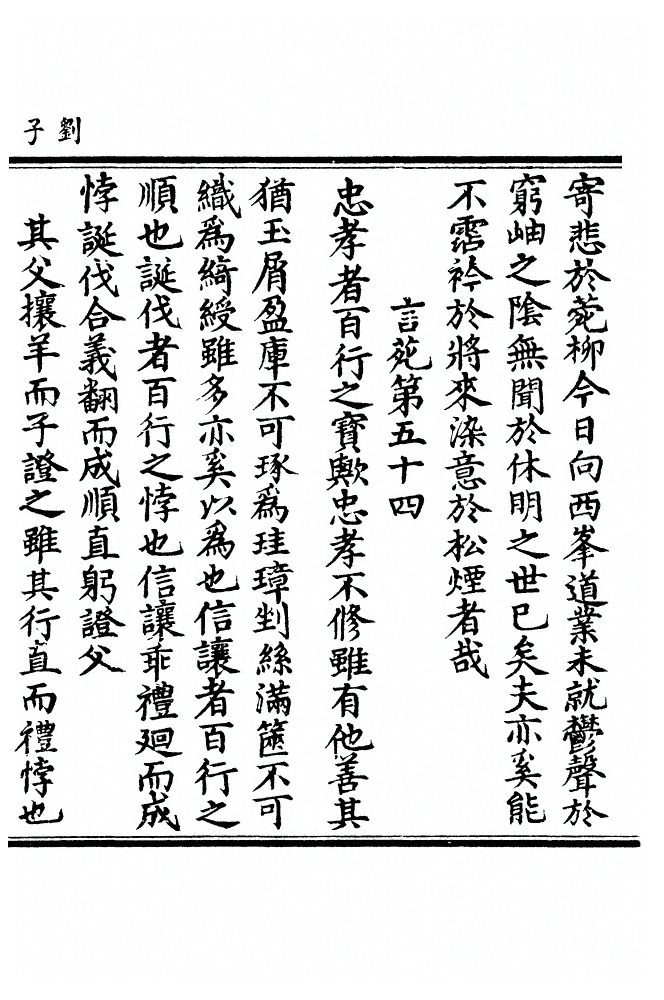 劉子
寄悲於菀柳今日向西峯道業未就鬱聲於
窮岫之陰無聞於休明之世已矣夫亦奚能
不霑衿於將來染意於松煙者哉
言菀第五十四
忠孝者百行之寶歟忠孝不修雖有他善其
猶玉屑盈庫不可琢為珪璋剉絲滿篋不可
織為綺綬雖多亦奚以為也信讓者百行之
順也誕伐者百行之悖也信讓乖禮廻而成
悖誕伐合義翻而成順直躬證父
其父攘羊而子證之雖其行直而禮悖也